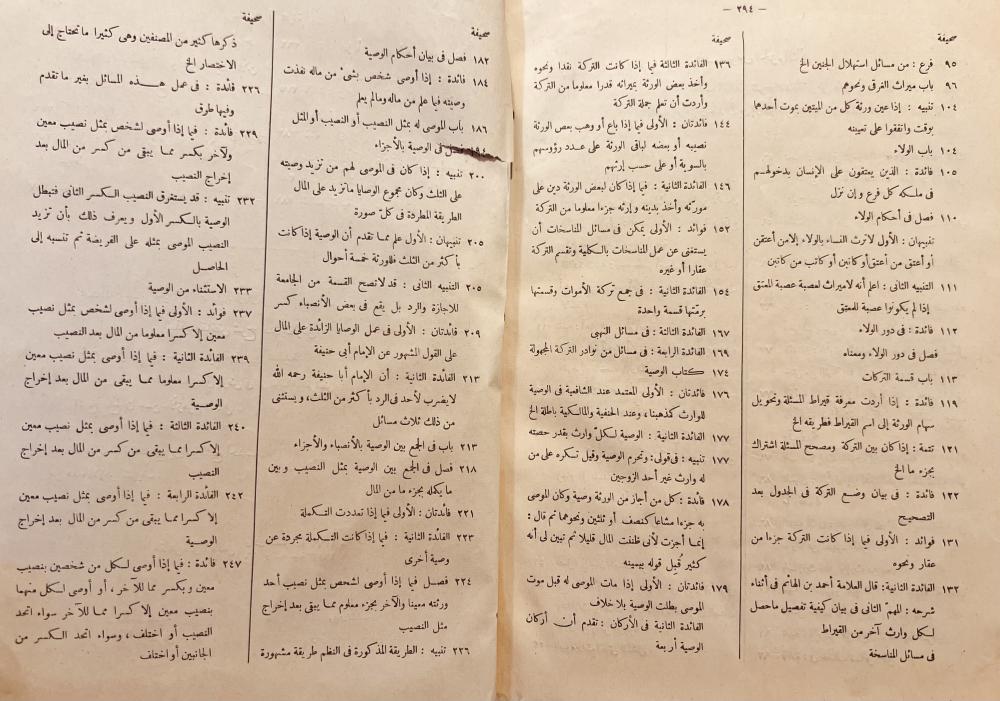 — ٢٩٤ —
صحيفة
٩٥ فرع : من مسائل استهلال الجنين الخ
٩٦ باب ميراث الغرقى ونحوهم
١٠٤ تنبيه : إذا عين ورثة كل من الميتين بموت أحدهما
بوقت واتفقوا على تعيينه
١٠٤ باب الولاء
١٠٥ فائدة : الذين يعتقون على الإنسان بدخولهم
فى ملكه كل فرع وإن نزل
١١٠ فصل فى أحكام الولاء
تنبيهان : الأول لاترث النساء بالولاء إلا من أعتقن
أو أعتق من أعتق أو كاتبن أو كاتب من كاتبن
١١١ التنبيه الثانى : اعلم أنه لاميراث لعصبة عصبة المعتق
إذا لم يكونوا عصبة للمعتق
١١٢ فائدة : فى دور الولاء
فصل فى دور الولاء ومعناه
١١٣ باب قسمة التركات
١١٩ فائدة : إذا أردت معرفة قيراط المسئلة وتحويل
سهام الورثة إلى اسم القيراط فطريقه الخ
١٢١ تتمة : إذا كان بين التركة ومصحح المسئلة اشتراك
بجزء ما الخ
١٢٢ فائدة : فى بيان وضع التركة فى الجدول بعد
التصحيح
١٣١ فوائد : الأولى فيما إذا كانت التركة جزءا من
عقار ونحوه
١٣٢ الفائدة الثانية : قال العلامة أحمد بن الهائم فى أثناء
شرحه : المهم الثانى فى بيان كيفية تفصيل ماحصل
لكل وارث آخر من القيراط
فى مسائل المناسخة
صحيفة
١٣٦ الفائدة الثالثة فيما إذا كانت التركة نقدا ونحوه
وأخذ بعض الورثة بميراثه قدرا معلوما من التركة
وأردت أن تعلم جملة التركة
١٤٤ فائدتان : الأولى فيما إذا باع أو وهب بعض الورثة
نصيبه أو بعضه لباقى الورثة على عدد رؤوسهم
بالسوية أو على حسب إرثهم
١٤٦ الفائدة الثانية : فيما إذا كان لبعض الورثة دين على
مورثه وأخذ بدينه وإرثه جزءا معلوما من التركة
١٥٢ فوائد : الأولى يمكن فى مسائل المناسخات أن
يستغنى عن عمل المناسخات بالكلية وتقسم التركة
عقارا أو غيره
١٥٤ الفائدة الثانية : فى جمع تركة الأموات وقسمتها
برمتها قسمة واحدة
١٦٧ الفائدة الثالثة : فى مسائل النهبى
١٦٩ الفائدة الرابعة : فى مسائل من نوادر التركة المجهولة
١٧٤ كتاب الوصية
١٧٦ فائدتان : الأولى المعتمد عند الشافعية فى الوصية
للوارث كمذهبنا ، وعند الحنفية والمالكية باطلة الخ
١٧٧ الفائدة الثانية : الوصية لكل وارث بقدر حصته
١٧٧ تنبيه : فى قولى : وتحرم الوصية وقيل تكره على من
له وارث غير أحد الزوجين
١٧٨ فائدة : كل من أجاز من الورثة وصية وكان الموصى
به جزءا مشاعا كنصف أو ثلثين ونحوهما ثم قال :
إنما أجزت لأنى ظننت المال قليلا ثم تبين لى أنه
كثير قُبل قوله بيمينه
١٧٩ فائدتان : الأولى إذا مات الموصى له قبل موت
الموصى بطلت الوصية بلا خلاف
الفائدة الثانية فى الأركان : تقدم أن أركان
الوصية أربعة
صحيفة
١٨٢ فصل فى بيان أحكام الوصية
١٨٤ فائدة : إذا أوصى شخص بشئ من ماله نفذت
وصيته فيما علم من ماله ومالم يعلم
١٨٦ باب الموصى له بمثل النصيب أو النصيب أو المثل
١٩٤ فصل فى الوصية بالأجزاء
٢٠٠ تنبيه : إذا كان فى الموصى لهم من تزيد وصيته
على الثلث وكان مجموع الوصايا ماتزيد على المال
الطريقة المطردة فى كل صورة
٢٠٥ تنبيهان : الأول علم مما تقدم أن الوصية إذا كانت
بأكثر من الثلث فللورثة خمسة أحوال
٢٠٥ التنبيه الثانى : قد لانصح القسمة من الجامعة
للاجازة والرد بل يقع فى بعض الأنصباء كسر
٢٠٩ فائدتان : الأولى فى عمل الوصايا الزائدة على المال
على القول المشهور عن الإمام أبى حنيفة
٢١٣ الفائدة الثانية : أن الإمام أبا حنيفة رحمه الله
لايضرب لأحد فى الرد بأكثر من الثلث ، ويستثنى
من ذلك ثلاث مسائل
٢١٣ باب فى الجمع بين الوصية بالأنصباء والأجزاء
٢١٨ فصل فى الجمع بين الوصية بمثل النصيب وبين
ما يكمله بجزء ما من المال
٢٢١ فائدتان : الأولى فيما إذا تعددت التكملة
٢٢٣ الفائدة الثانية : فيما إذا كانت التكملة مجردة عن
وصية أخرى
٢٢٤ فصل فيما إذا أوصى لشخص بمثل نصيب أحد
ورثته معينا والآخر بجزء معلوم مما يبقى بعد إخراج
مثل النصيب
٢٢٦ تنبيه : الطريقة المذكورة فى النظم طريقة مشهورة
صحيفة
ذكرها كثير من المصنفين وهى كثيرا ما تحتاج إلى
الاختصار الخ
٢٢٦ فائدة : فى عمل هذه المسائل بغير ما تقدم
وفيها طرق
٢٢٩ فائدة : فيما إذا أوصى لشخص بمثل نصيب معين
ولآخر بكسر مما يبقى من كسر من المال بعد
إخراج النصيب
٢٣٢ تنبيه : قد يستغرق النصيب الكسر الثانى فتبطل
الوصية بالكسر الأول ويعرف ذلك بأن تزيد
النصيب الموصى بمثله على الفريضة ثم تنسبه إلى
الحاصل
٢٣٣ الاستثناء من الوصية
٢٣٧ فوائد : الأولى فيما إذا أوصى لشخص بمثل نصيب
معين إلا كسرا معلوما من المال بعد النصيب
٢٣٩ الفائدة الثانية : فيما إذا أوصى بمثل نصيب معين
إلا كسرا معلوما مما يبقى من المال بعد إخراج
الوصية
٢٤٠ الفائدة الثالثة : فيما إذا أوصى بمثل نصيب معين
إلا كسرا مما يبقى من كسر من المال بعد إخراج
النصيب
٢٤٢ الفائدة الرابعة : فيما إذا أوصى بمثل نصيب معين
إلا كسرا مما يبقى من كسر من المال بعد إخراج
الوصية
٢٤٧ فائدة : فيما إذا أوصى لكل من شخصين بنصيب
معين وبكسر مما للآخر ، أو أوصى لكل منهما
بنصيب معين إلا كسرا مما للآخر سواء اتحد
النصيب أو اختلف ، وسواء اتحد الكسر من
الجانبين أو اختلف